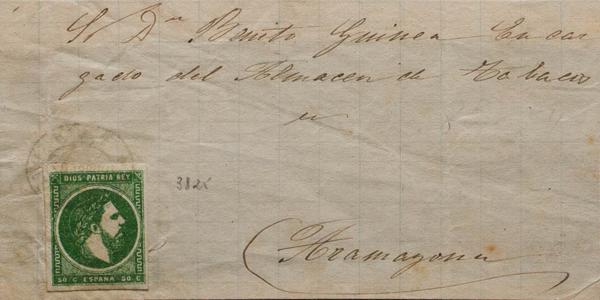 Sr Dn Benito Guinea Encar
gado del Almacen de Tabacos
en
Aramayona
3825
DIOS PATRIA REY
50 C ESPAÑA 50 C